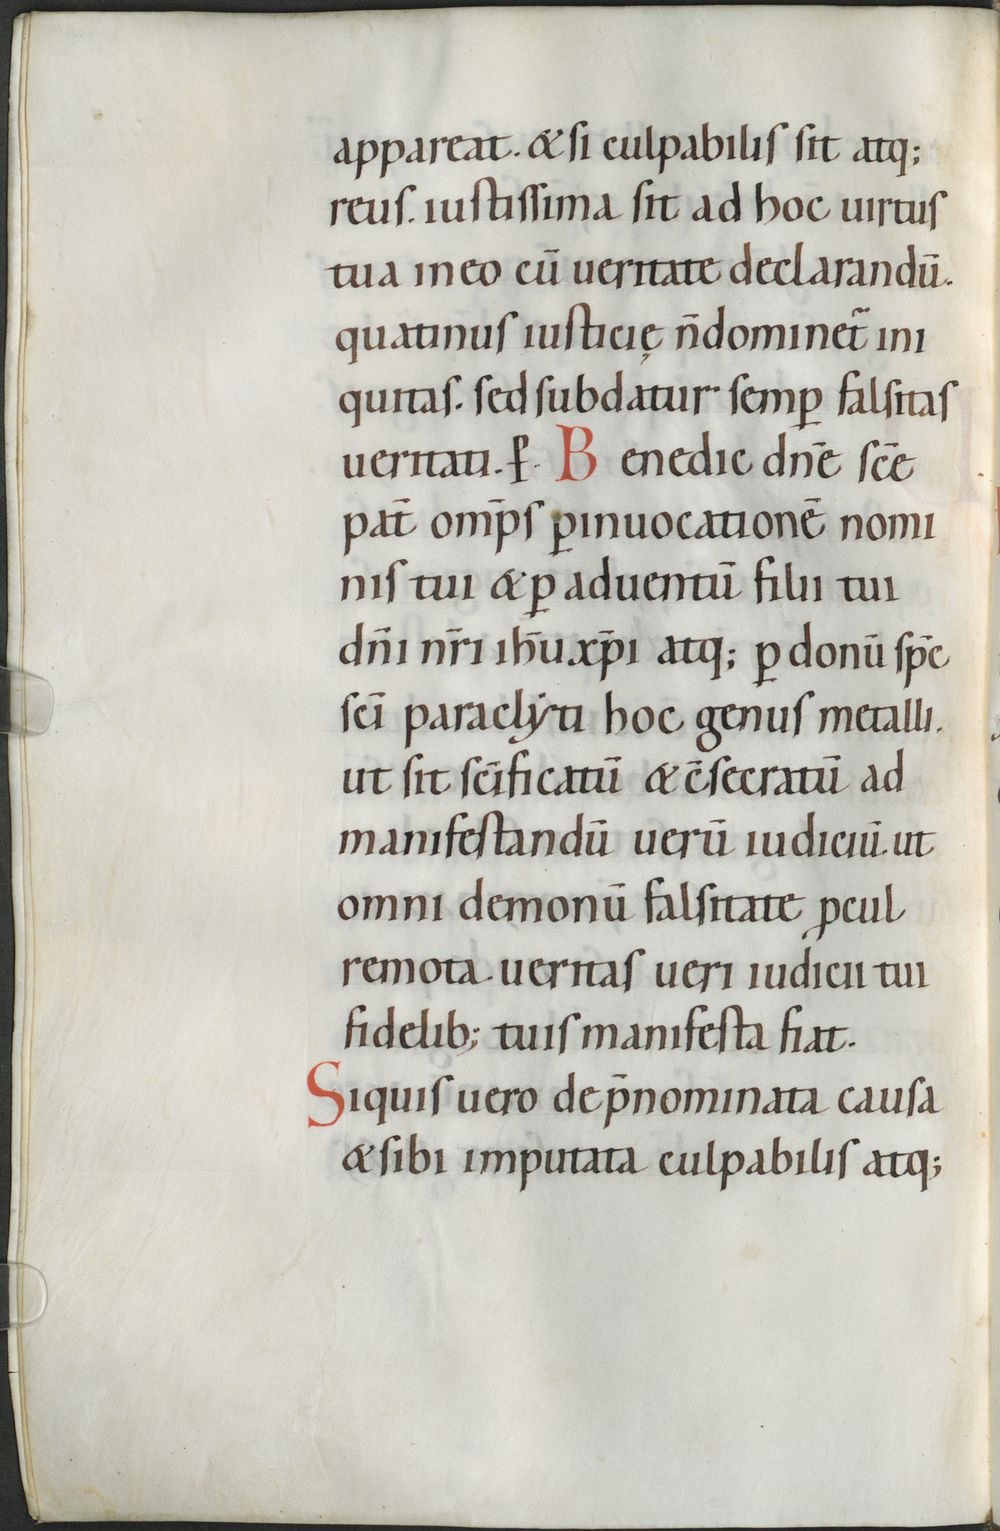 appareat. & si culpabilis sit atq;
reus. iustissima sit ad hoc uirtus
tua in eo cū ueritate declarandū.
quatinus iusticię n̄ dominet̄ ini
quitas. sed subdatur semꝑ falsitas
ueritati. ꝑ. Benedic dn̄e sc̄e
pat̄ om̄ps ꝑ inuocationē nomi
nis tui & ꝑ aduentū filii tui
dn̄i nr̄i ih̄u xp̄i atq; ꝑ donū sp̄c
sc̄i paraclẏti hoc genus metalli.
ut sit sc̄ificatū & c̄secratū ad
manifestandū uerū iudiciū. ut
omni demonū falsitate ꝓcul
remota. ueritas ueri iudicii tui
fidelib; tuis manifesta fiat.
Siquis uero de p̄nominata causa
& sibi imputata culpabilis atq;